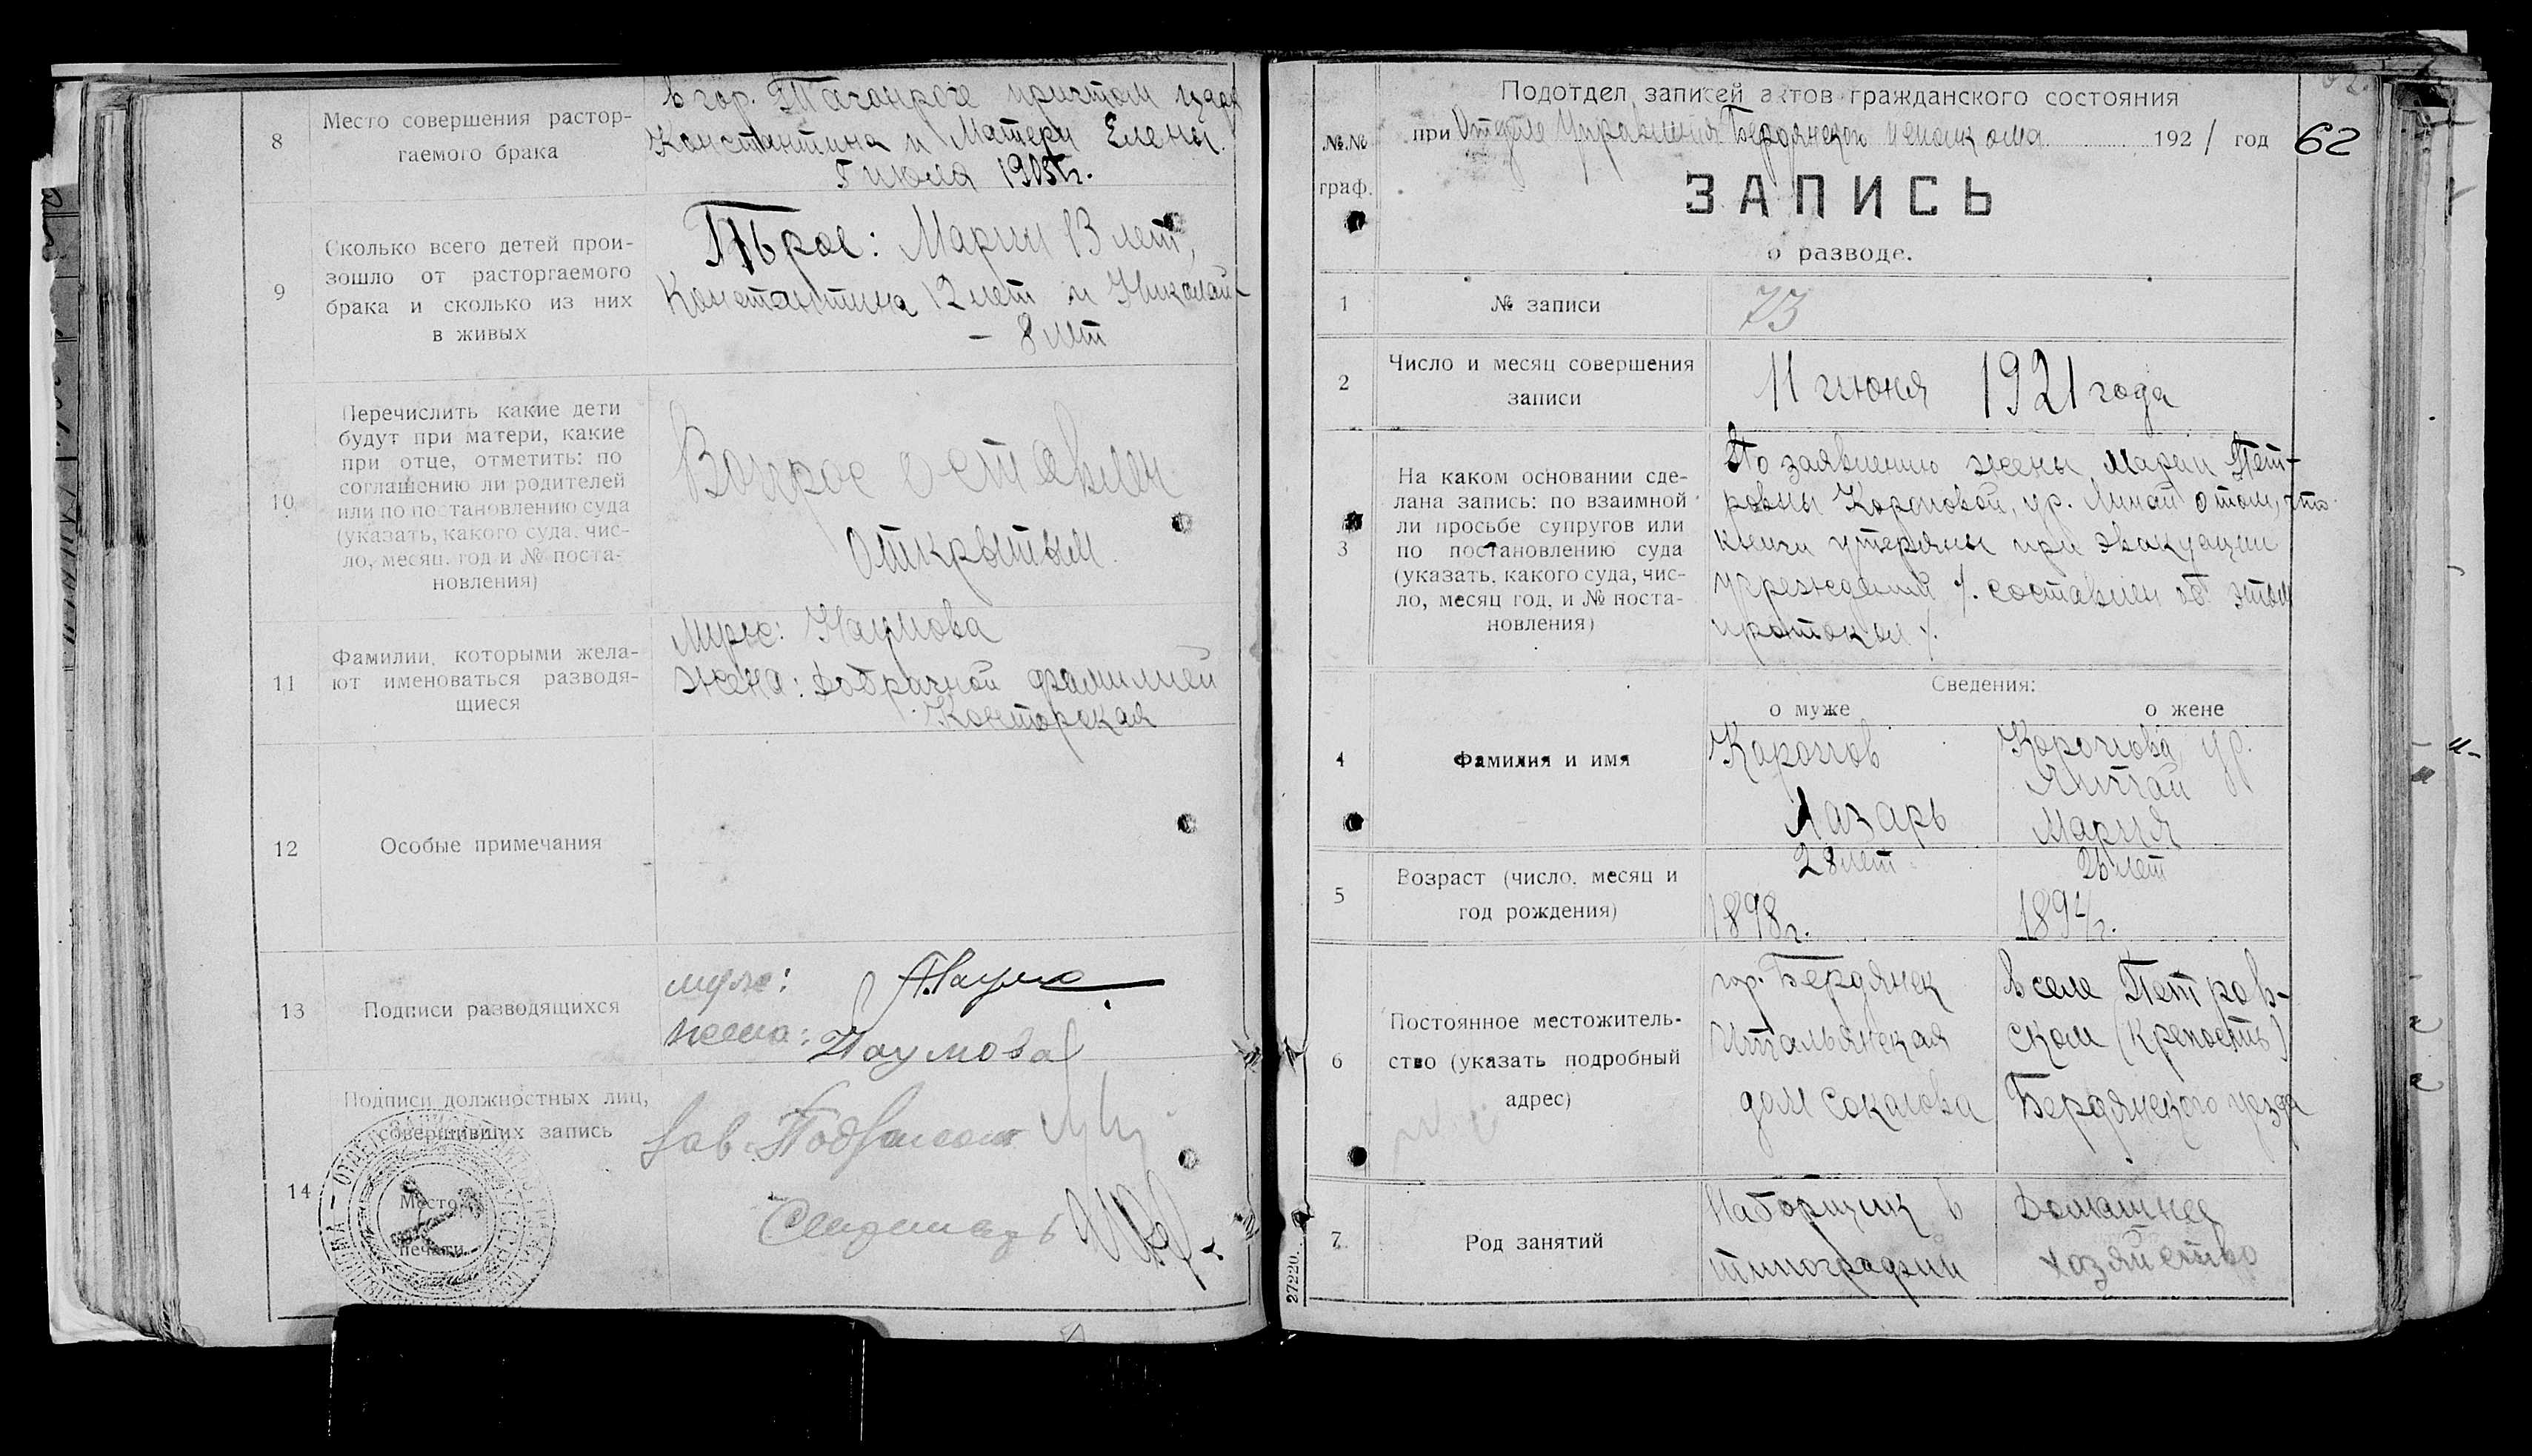 8
Место совершения растор-
гаемого брака
в гор. Таганроге причтом царя
Константина и Матери Елены.
1905 г.
9
Сколько всего детей прои-
зошло от расторгаемого
брака и сколько из них
в живых
Трое: Мария 13 лет,
Константина 12 лет и Николай
– 8 лет
10
Перечислить какие дети
будут при матери, какие
при отце, отметить: по
соглашению ли родителей
или по постановлению суда
(указать, какого суда, чис-
ло, месяц, год и № поста-
новления)
Вопрос оставлен
открытым
11
Фамилии, которыми жела-
ют именоваться разводя-
щиеся
Муж: Наумова
Жена: добрачной фамилией
Конторская
12
Особые примечания
13
Подписи разводящихся
муж:
жена: Наумова
14
Подписи должностных лиц,
совершивших запись
Место
печати
Зав. Подотделом
№№
граф.
Подотдел записей актов гражданского состояния
при Отделе Управления Бердянского исполкома 1921 год
62
ЗАПИСЬ
о разводе.
1
№ записи
73
2
Число и месяц совершения
записи
11 июня 1921 года
3
На каком основании сде-
лана запись: по взаимной
ли просьбе супругов или
по постановлению суда
(указать, какого суда, чис-
ло, месяц год, и № поста-
новления)
По заявлению жены Марии Пет-
ровны ур. о том, что
книги утеряны при эвакуации
учреждения /. составлен об этом
протокол /.
Сведения:
о муже
о жене
4
Фамилия и имя
Лазарь
ур.
Мария
5
Возраст (число, месяц и
год рождения)
28 лет
1898 г.
26 лет
1894 г.
6
Постоянное местожитель-
ство (указать подробный
адрес)
гор. Бердянск
Итальянская
дом Соколова
в селе Петров-
ском (Крепость)
Бердянского уезда
7
Род занятий
Наборщик в
типографии
Домашнее
хозяйство
27220.